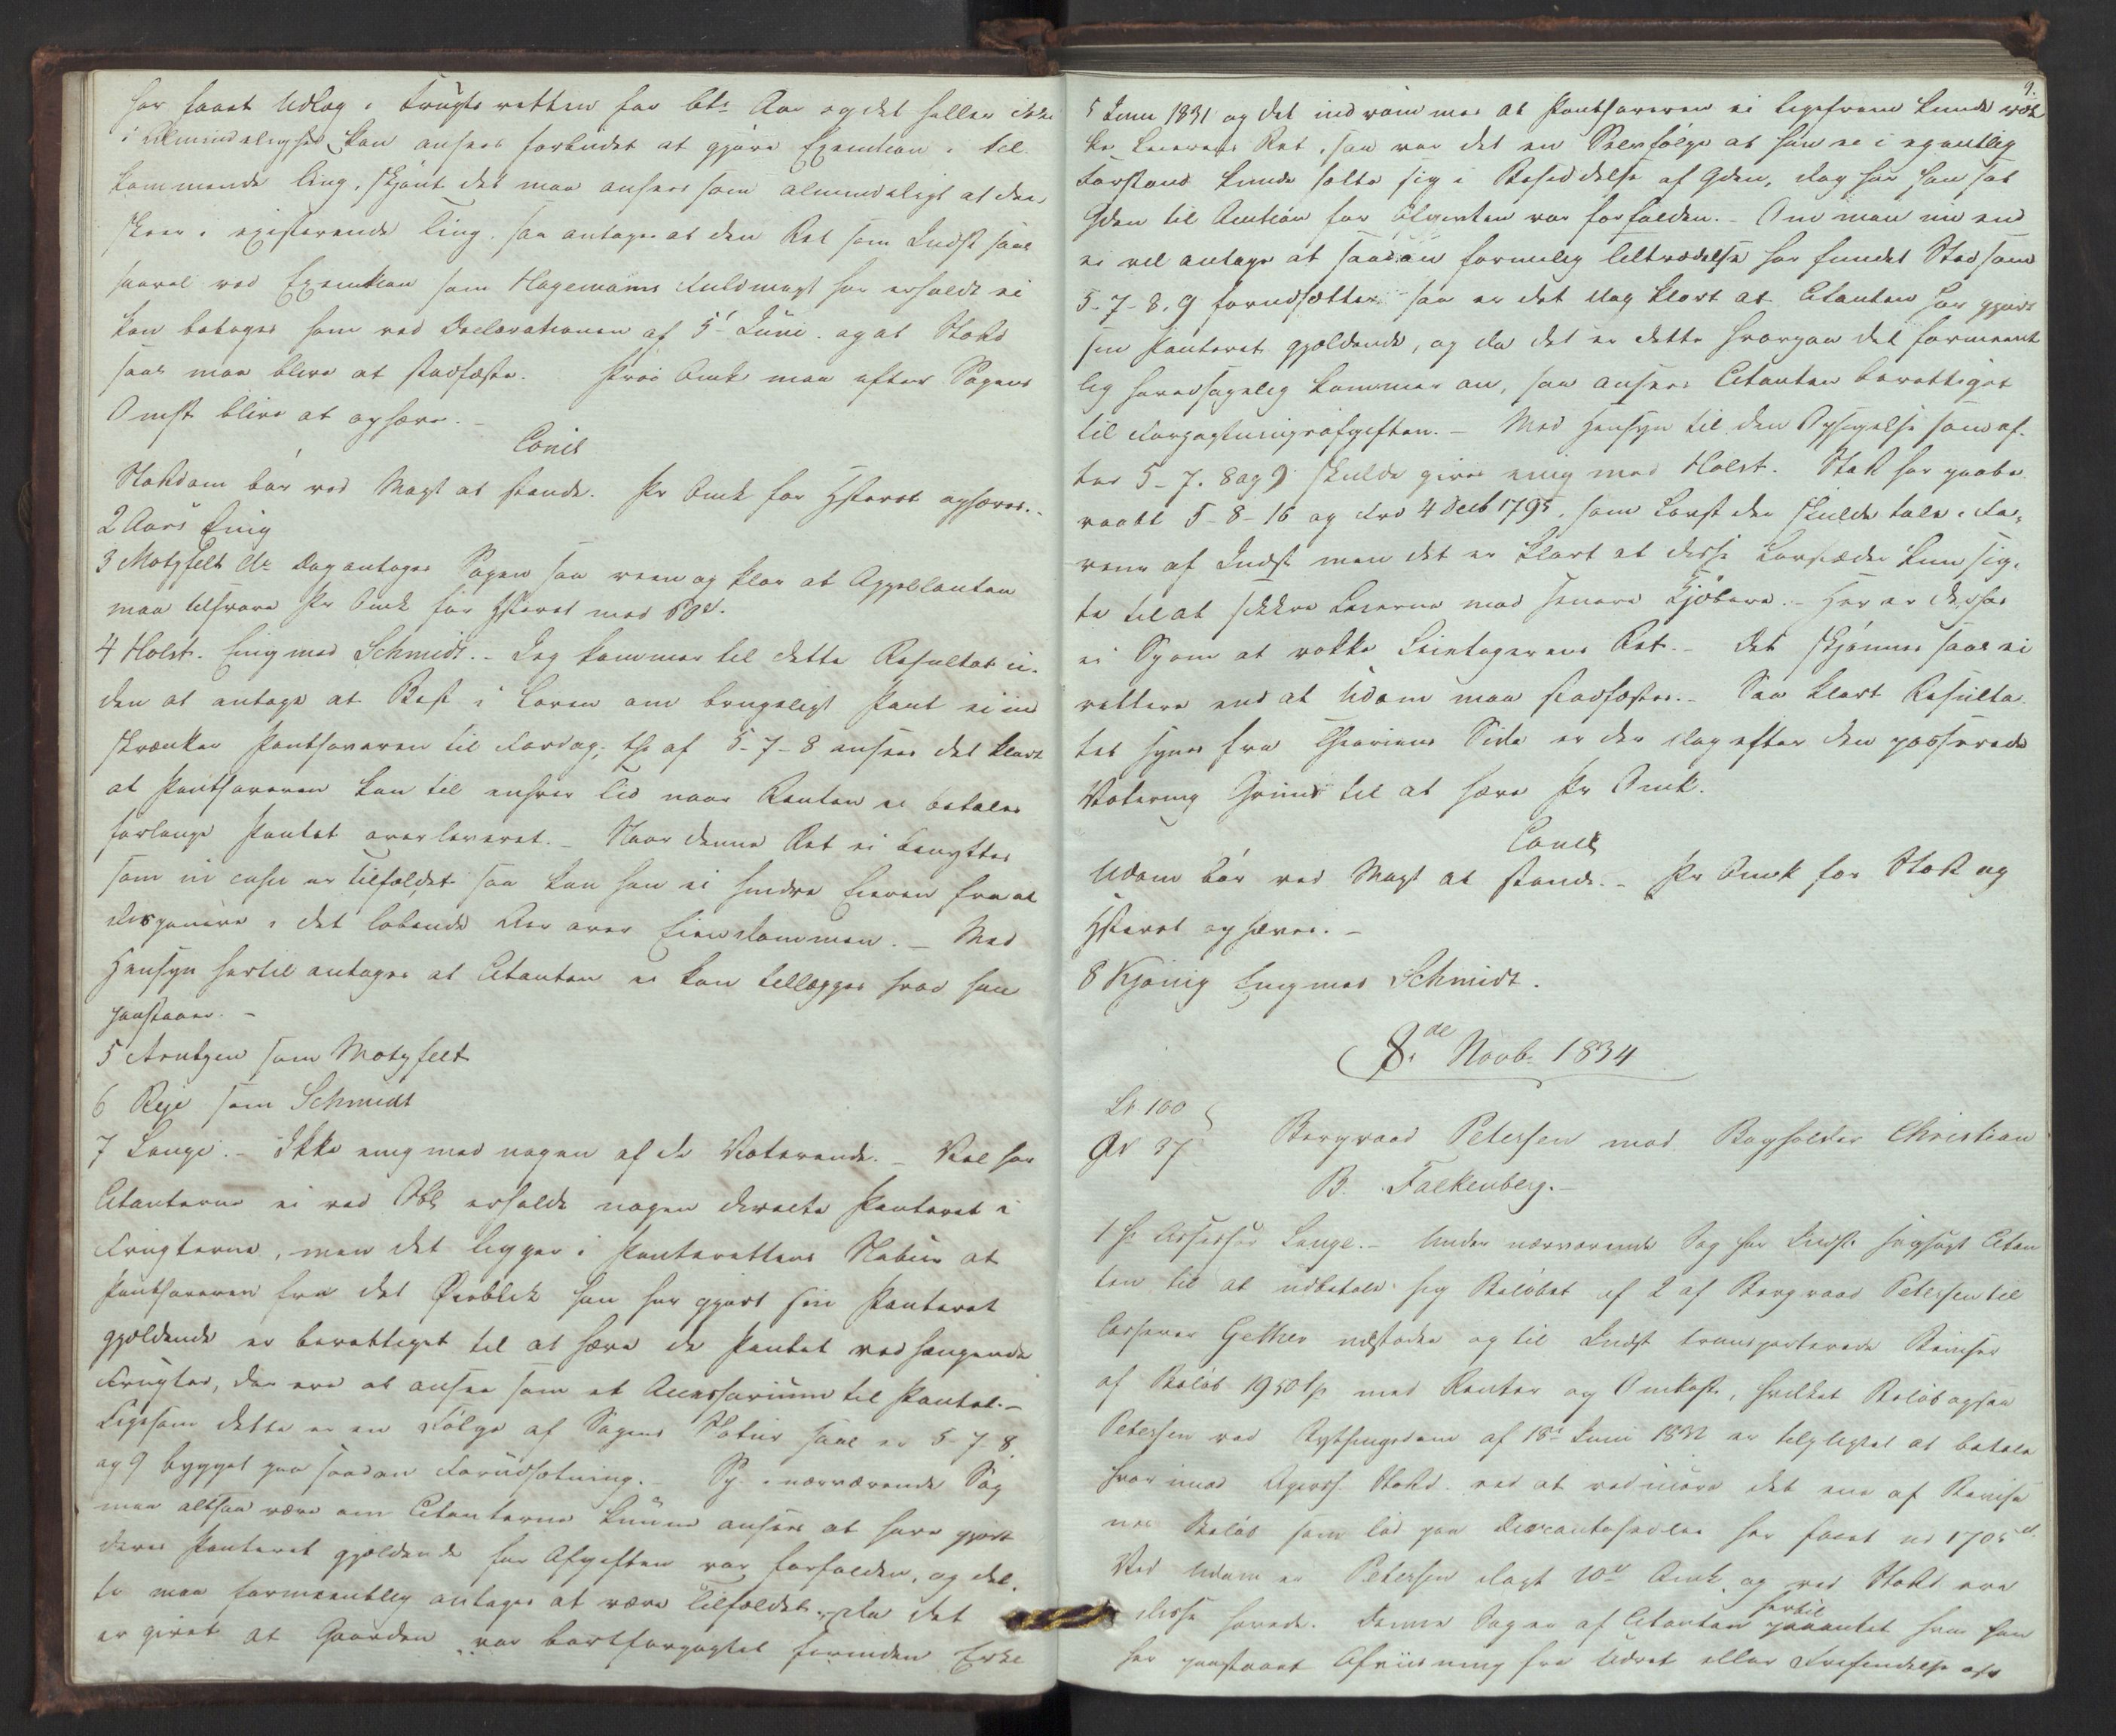 har faaet Udlæg i Frugterettens for btr Aar og det heller ikke
i Almindelighed kan ansees forbudet at gjøre Execution i til
kommende Ting, skjønt det maa ansees som almindeligt at den
skeer i existerende Ting, saa antages at den Ret som Indst saae
saavel ved Execution som Hagemanns Fuldmagt har erholdt ei
kan betages ham ved Declarationen af 5 Juni og at Stokd
saal maa blive at stadfæste. Pros Omk maa efter Sagens
Omst blive at ophæve. -
Concl
Stokdom bør ved Magt at stande. Pr Omk for Hsteret ophæves. -
2 Aars Enig
3 Motzfelt do Dog antages Sagen saa reen og klar at Appellanten
maa tilsvare Pr Omk for Hsteret med
4 Holst. Enig med Schmidt. - Jeg kommer til dette Resultat i-
den at antage at Best i Loven om brugeligt Pant ei ind
skrænker Panthaveren til Fordag; thi af 5-7-8 ansees det klart
at Panthaveren kan til enhver Tid naar Renten ei betales
forlange Pantet overleveret. - Naar denne Ret ei benyttes
som in casu er Tilfældet saa kan han ei hindre Eieren fra at
disponere i det løbende Aar over Eiendommen. - Med
Hensyn hertil antages at Citanten ei kan tillægges hvad han
paastaaer. -
5 Arntzen som Motzfelt
6 Reje som Schmidt
7 Lange. - Ikke enig med nogen af de Voterende. - Vel har
Citanterne ei ved Obl erholdt nogen directe Panteret i
Frugterne, men det ligger i Panterettens Natur at
Panthaveren fra det Øieblik han har gjort sin Panteret
gjældende er berettiget til at hæve de Pantet vedhængende
Frugter, der ere at ansee som et Accessorium til Pantet. -
Ligesom dette er en Følge af Sagens Natur saal er 5-7-8
og 9 bygget paa saadan Forudsætning. - Sp. i nærværende Sag
maa altsaa være om Citanterne kunne ansees at have gjort
deres Panteret gjældende før Afgiften var forfalden, og det-
te maa formeentlig antages at være Tilfældet, da det
er givet at Gaarden var bortforpagtet forinden
9.
5 Juni 1831 og det indrømmes at Panthaveren ei ligefrem kunde røk
ke Leierens Ret, saa var det en Selvfølge at han ei i egentlig
Forstand kunde sætte sig i Besiddelse af Gden, dog har han sat
Gden til Auction før Afgiften var forfalden. - Om man nu end
ei vel antage at saadan formelig Tiltrædelse har fundet Sted som
5-7-8, 9 forudsætter, saa er det dog klart at Citanten har gjort
sin Panteret gjældende, og da det er dette hvorpaa det formeent
lig hovedsagelig kommer an, saa ansees Citanten berettiget
til Forpagtningsafgiften. - Med Hensyn til den Opsigelse som ef-
ter 5-7. 8 og 9 skulde gives enig med Holst. Stokd har paabe
raabt 5-8-16 og Frd 4 Decb 1795, som Lovsteder skulde tale i Fa-
veur af Indst men det er klart at disse Lovsteder kun sig-
te til at sikkre Leierne mod senere Kjøbere. - Her er derhos
ei Spørm at røkke Leietagerens Ret. - Det skjønnes saal ei
rettere end at Udom maa stadfæstes. - Saa klart Resulta-
tet synes fra Theoriens Side er der dog efter den passerede
Votering Grund til at hæve Pr Omk.
Concl
Udom bør ved Magt at stande. - Pr Omk for Stokd og
Hsteret ophæves. -
8 Kjønig Enig med Schmidt.
8de Novb. 1834
Lr 100
Qv 37
Bergraad Petersen mod Bogholder Christian
B. Falkenberg. -
1 Hr Assessor Lange. - Under nærværende Sag har Indst søgsøgt Citan
ten til at udbetale sig Beløbet af 2 af Bergraad Petersen til
Casserer Gether udstedte og til Indst transporterede Beviser
af Beløb 1950 Sp med Renter og Omkost, hvilket Beløb ogsaa
Petersen ved Bythingsdom af 18de Juni 1832 er tilpligtet at betale
hvorimod Agersh. Stokd. ved at reducere det ene af Bevise
nes Beløb som lød paa Discontosedler har faaet ud 1705
Ved Udom er Petersen ilagt 10 Omk og ved Stokd ere
disse hævede. Denne Sag er af Citanten hertil paaanket hvor han
har paastaaet Afviisning fra Udret eller Frifindelse og